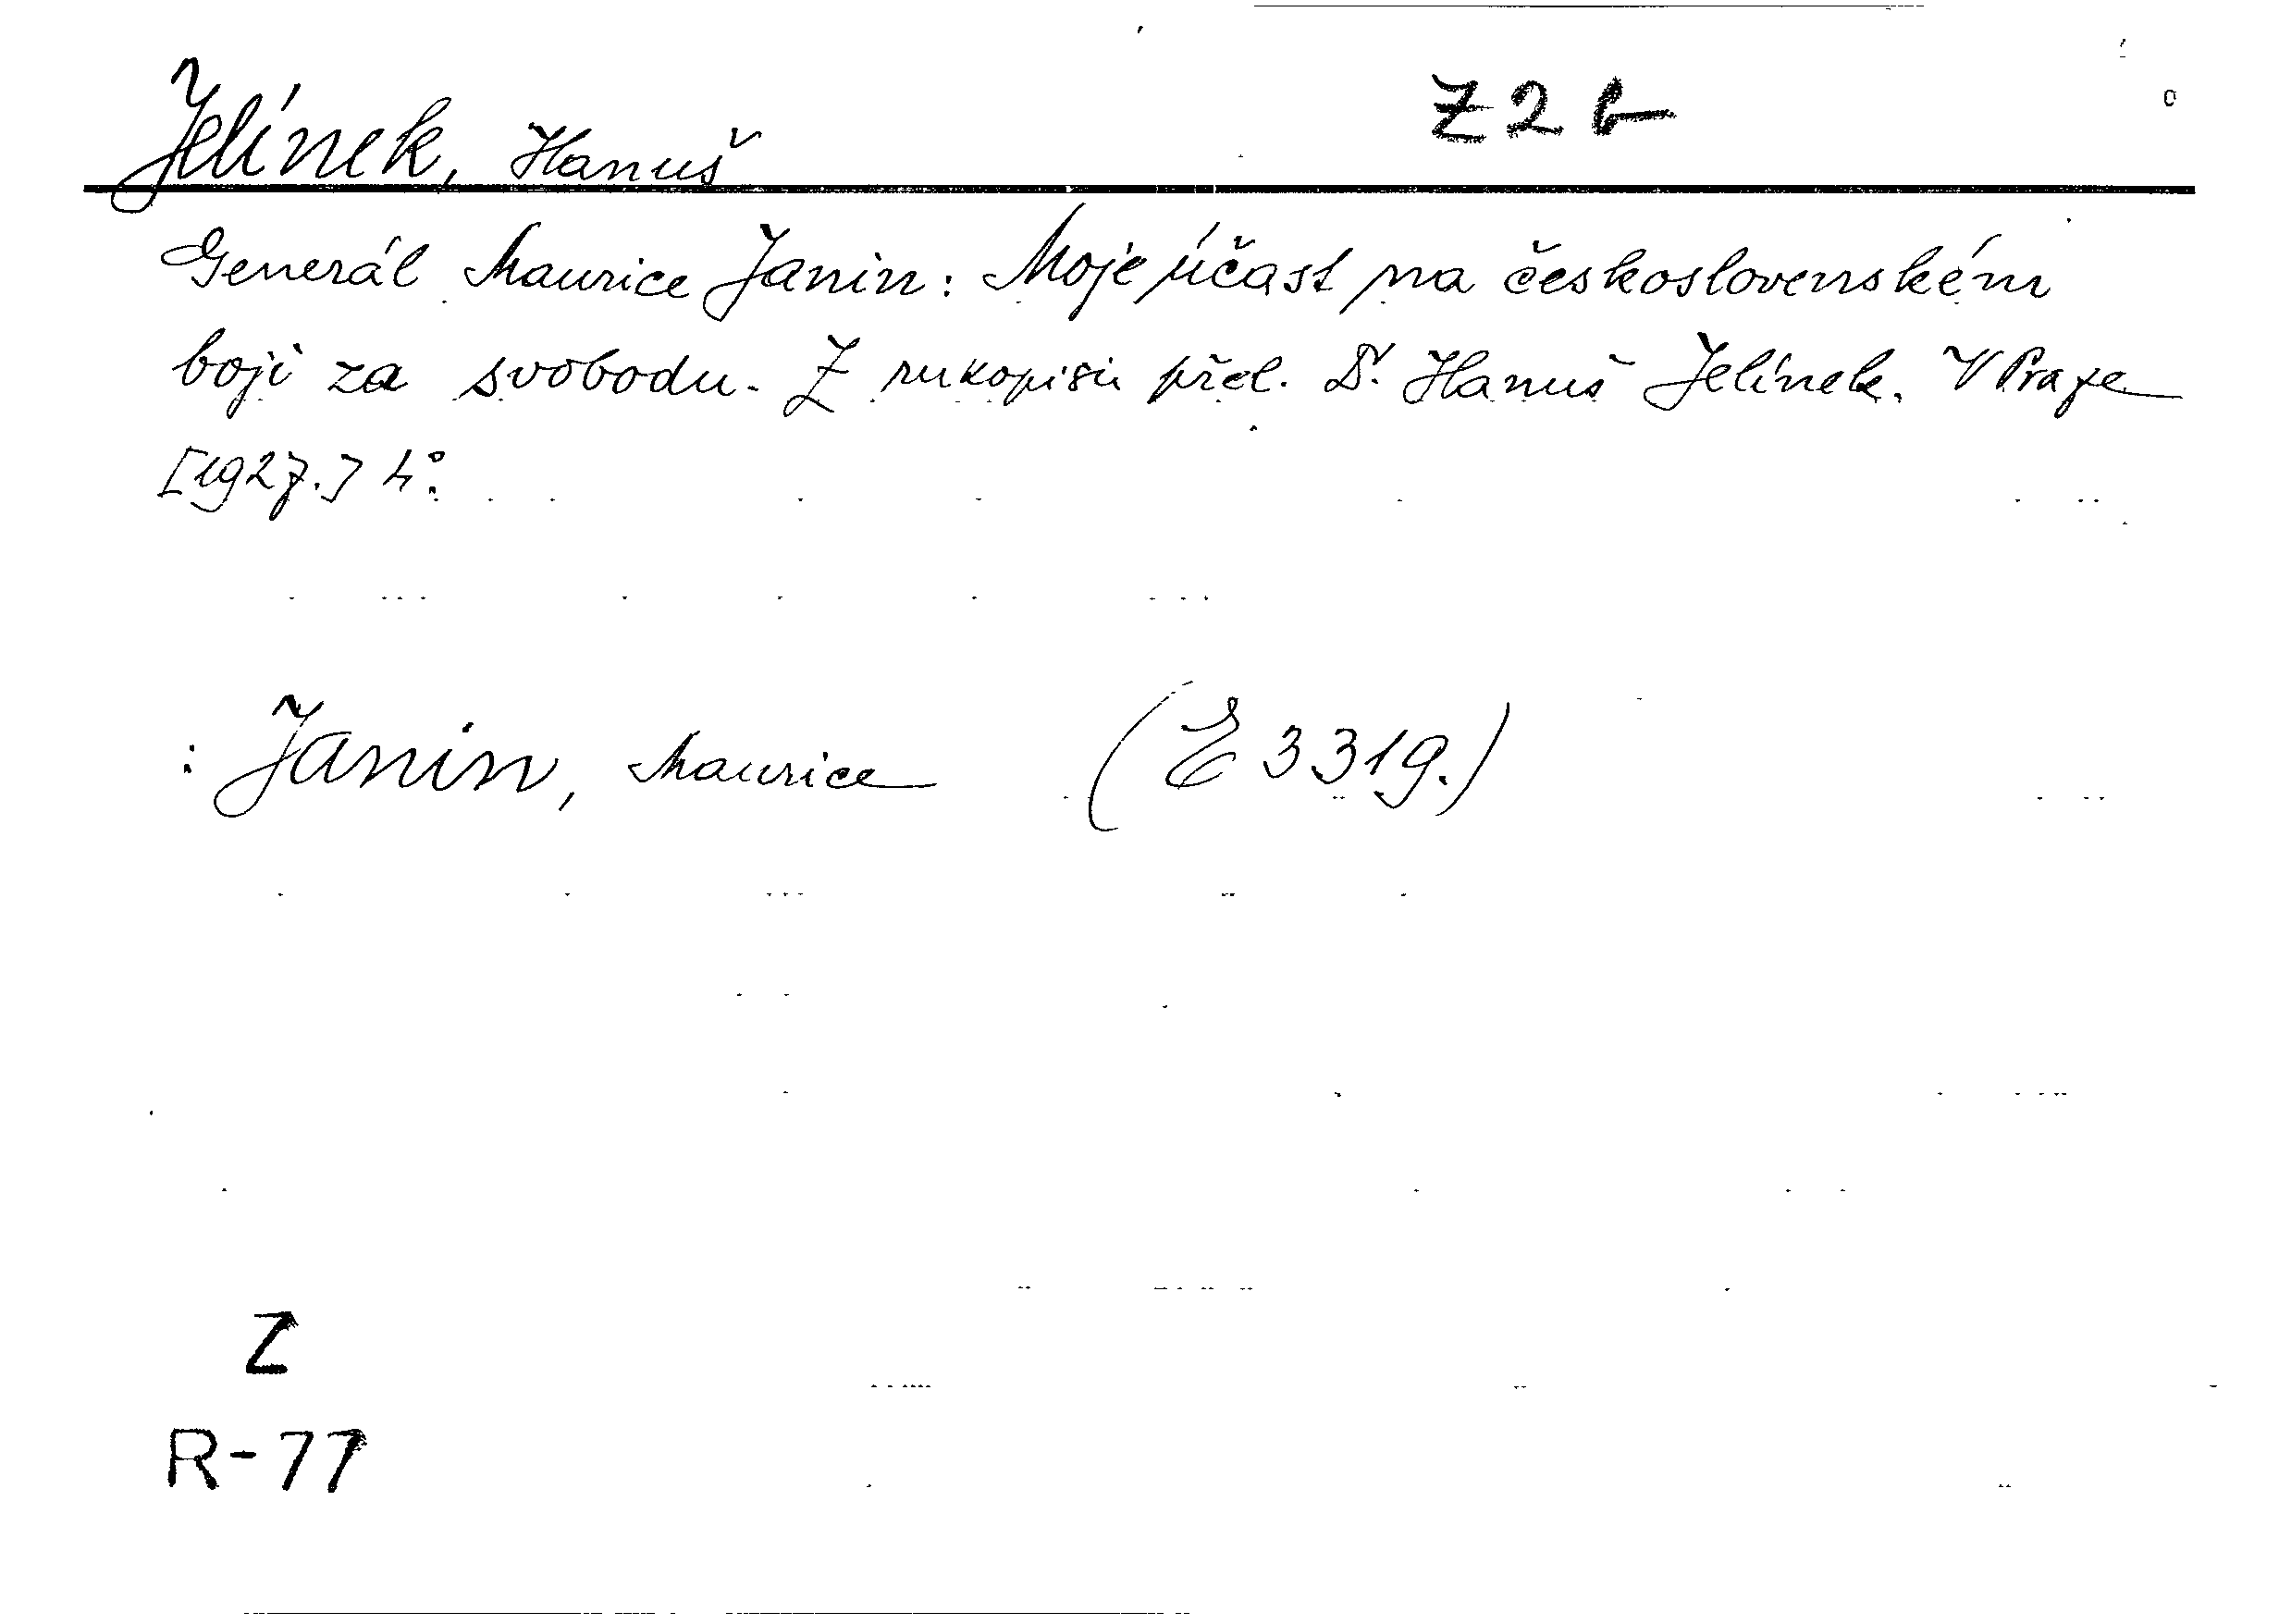 Jelínek, Hanuš Z 2 b
Generál Maurice Janin: Moje účast na československém
boji za svobodu. Z rukopisu přel. Dr. Hanuš Jelínek. V Praze
[1927.] 4°.
: Janin, Maurice (E 3319.)
Z
R-77